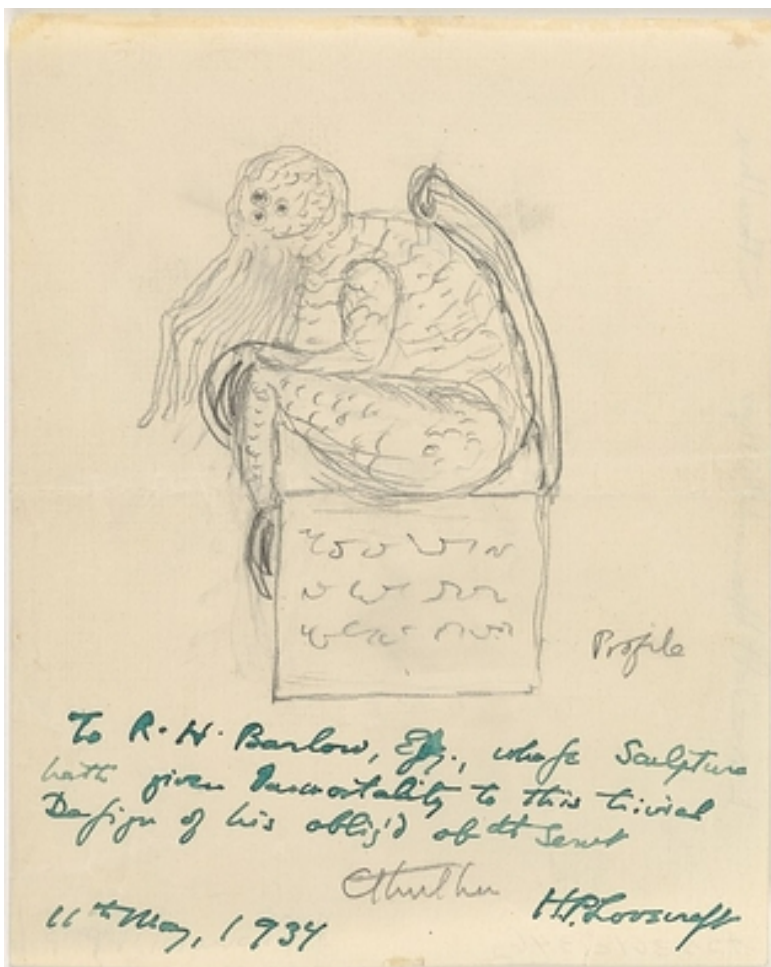 Profile
To R. H. Barlow, Esq., whose Sculpture
hath given Immortality to this trivial
Design of his oblig'd obdt Servt
Cthulhu
H.P. Lovecraft
11th May, 1934